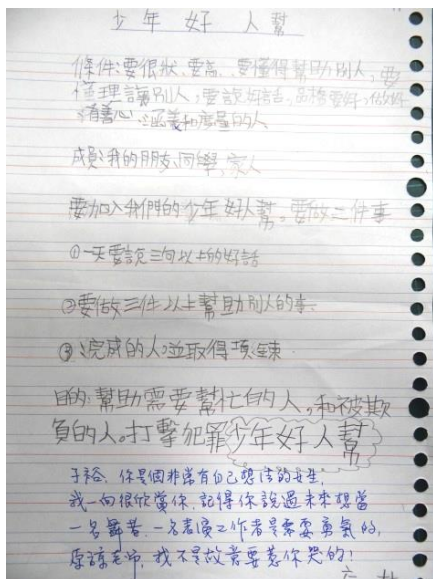 少年好人幫
條件:要很狀、要高、要懂得幫助別人,要
理讓別人,要說好話,品格要好,做好
有善心、涵義和度量的人
成員:我的朋友、同學、家人
要加入我們的少年好人幫。要做二件事
①一天要說三句以上的好話
②要做三件以上幫助別人的事.
③完成的人並取得項鍊
目的:幫助需要幫忙的人,和被欺
負的人。打擊犯罪少年好人幫
子裕,你是個非常有自己想法的女生,
我一向很欣賞你,記得你說過未來想當
一名舞者,一名表演工作者是需要勇氣的,
原諒老師,我不是故意要惹你哭的!